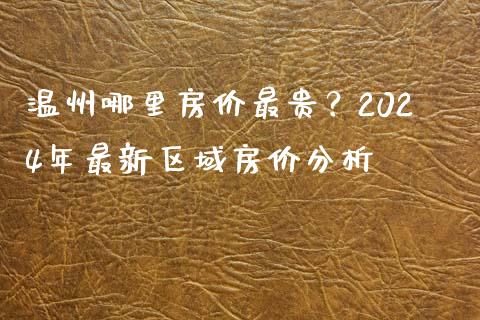 温州哪里房价最贵？202
4年最新区域房价分析